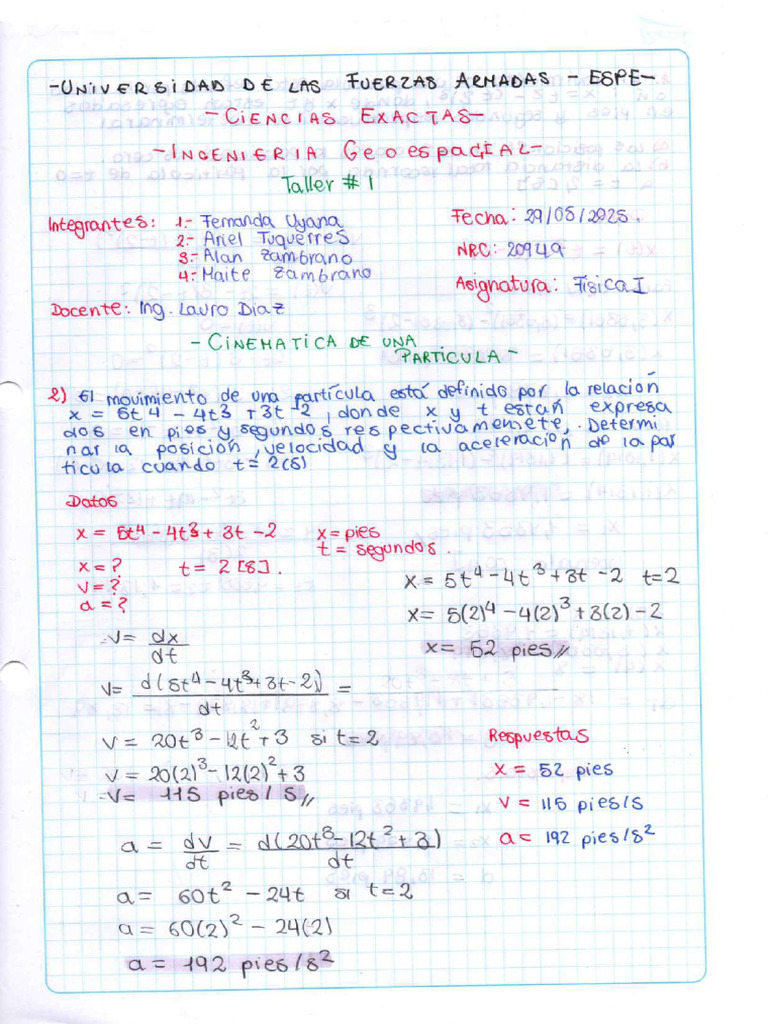 -UNIVERSIDAD DE LAS FUERZAS ARMADAS - ESPE-
-CIENCIAS EXACTAS-
-INGENIERIA GEOESPACIAL-
Taller #1
Integrantes: 1.- Fernanda Uyana
2.- Ariel Tuquerres
3.- Alan Zambrano
4.- Maite Zambrano
Fecha: 29/05/2025.
NRC: 20949
Asignatura: Física I
Docente: Ing. Lauro Diaz
- CINEMATICA DE UNA
PARTICULA -
2) El movimiento de una partícula está definido por la relación
x = 5t⁴ - 4t³ + 3t - 2, donde x y t están expresa
dos en pies y segundos respectivamenete,. Determi
nar la posición, velocidad y la aceleración de la par
ticula cuando t = 2(s)
Datos
x = 5t⁴ - 4t³ + 3t - 2
x = pies
t = segundos.
x = ?
t = 2 [s].
v = ?
a = ?
x = 5t⁴ - 4t³ + 3t - 2 t=2
x = 5(2)⁴ - 4(2)³ + 3(2) - 2
x = 52 pies //
v = dx/dt
v = d(5t⁴ - 4t³ + 3t - 2)/dt =
v = 20t³ - 12t² + 3 si t = 2
v = 20(2)³ - 12(2)² + 3
v = 115 pies/s //
Respuestas
x = 52 pies
v = 115 pies/s
a = 192 pies/s²
a = dv/dt = d(20t³ - 12t² + 3)/dt
a = 60t² - 24t si t = 2
a = 60(2)² - 24(2)
a = 192 pies/s²